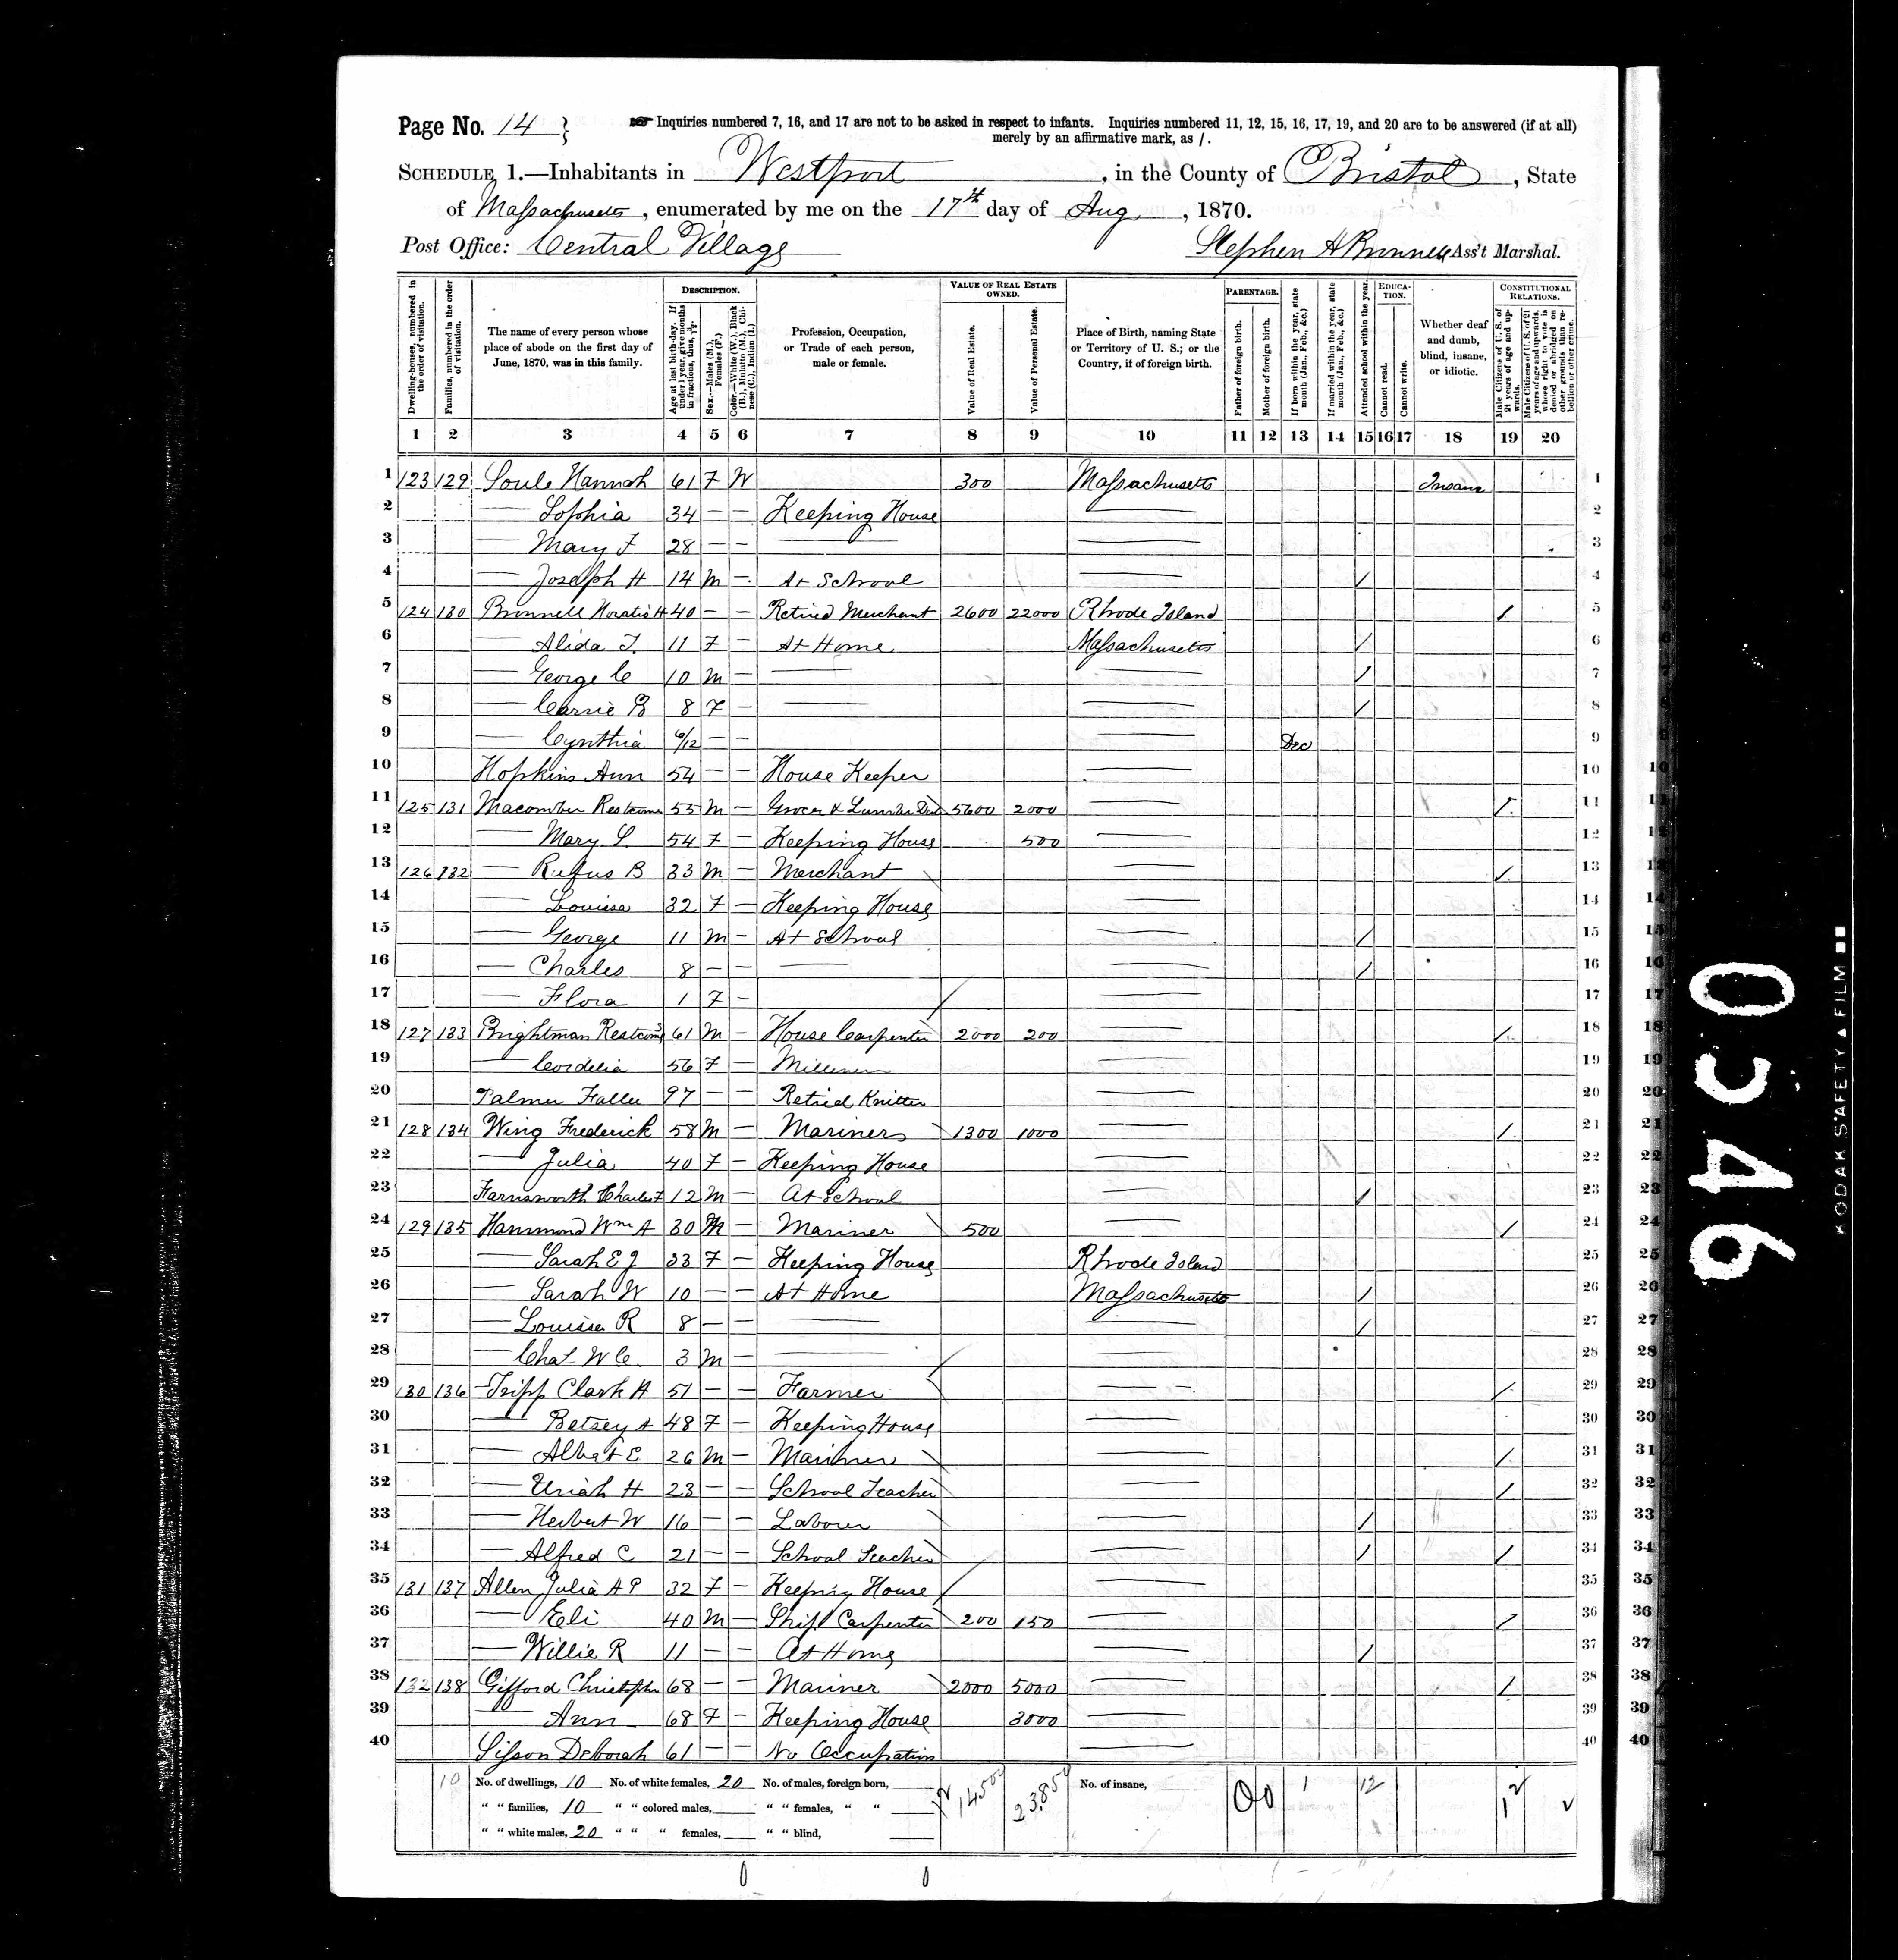 Page No. 14
Inquiries numbered 7, 16, and 17 are not to be asked in respect to infants. Inquiries numbered 11, 12, 15, 16, 17, 19, and 20 are to be answered (if at all)
merely by an affirmative mark, as /.
SCHEDULE 1.—Inhabitants in Westport, in the County of Bristol, State
of Massachusetts, enumerated by me on the 17th day of Aug, 1870.
Post Office: Central Village Stephen H Ass't Marshal.
Dwelling-houses, numbered in the order of visitation.
Families, numbered in the order of visitation.
The name of every person whose place of abode on the first day of June, 1870, was in this family.
DESCRIPTION.
Age at last birth-day. If under 1 year, give months in fractions, thus, 3/12.
Sex.—Males (M.), Females (F.)
Color.—White (W.), Black (B.), Mulatto (M.), Chinese (C.), Indian (I.)
Profession, Occupation, or Trade of each person, male or female.
VALUE OF REAL ESTATE OWNED.
Value of Real Estate.
Value of Personal Estate.
Place of Birth, naming State or Territory of U. S.; or the Country, if of foreign birth.
PARENTAGE.
Father of foreign birth.
Mother of foreign birth.
If born within the year, state month (Jan., Feb., &c.)
If married within the year, state month (Jan., Feb., &c.)
Attended school within the year.
EDUCATION.
Cannot read.
Cannot write.
Whether deaf and dumb, blind, insane, or idiotic.
CONSTITUTIONAL RELATIONS.
Male Citizens of U. S. of 21 years of age and upwards.
Male Citizens of U. S. of 21 years of age and upwards, whose right to vote is denied or abridged on other grounds than rebellion or other crime.
1 2 3 4 5 6 7 8 9 10 11 12 13 14 15 16 17 18 19 20
1 123 129 Soule Hannah 61 F W 300 Massachusetts Insane 1
2 — Sophia 34 — — Keeping House — 2
3 — Mary F 28 — — — — 3
4 — Joseph H 14 M — At School — / 4
5 124 130 Horatio H 40 — — Retired Merchant 2600 22000 Rhode Island / 5
6 — Alida T. 11 F — At Home Massachusetts / 6
7 — George C 10 M — — — / 7
8 — Carrie B 8 F — — — / 8
9 — Cynthia 6/12 — — — Dec 9
10 Hopkins Ann 54 — — House Keeper — 10
11 125 131 Macomber Restcome 55 M — Grocer & Lumber 5600 2000 — / 11
12 — Mary S. 54 F — Keeping House 500 — 12
13 126 132 — Rufus B 33 M — Merchant — / 13
14 — Louisa 32 F — Keeping House — 14
15 — George 11 M — At School — / 15
16 — Charles 8 — — — — / 16
17 — Flora 1 F — — 17
18 127 133 Brightman Restcome 61 M — House Carpenter 2000 200 — / 18
19 — Cordelia 56 F — Milliner — 19
20 Palmer 97 — — Retired Knitter — 20
21 128 134 Wing Frederick 58 M — Mariner 1300 1000 — / 21
22 — Julia 40 F — Keeping House — 22
23 Farnsworth Charles F 12 M — At School — / 23
24 129 135 Hammond Wm A 30 M — Mariner 500 — / 24
25 — Sarah E J 33 F — Keeping House Rhode Island 25
26 — Sarah W 10 — — At Home Massachusetts / 26
27 — Louisa R 8 — — — — / 27
28 — Chas W C. 3 M — — — 28
29 130 136 Tripp Clark A 51 — — Farmer — — / 29
30 — Betsey A 48 F — Keeping House — 30
31 — Albert E 26 M — Mariner — / 31
32 — Uriah H 23 — — School Teacher — / 32
33 — Herbert W 16 — — Laborer — / 33
34 — Alfred C 21 — — School Teacher — / / 34
35 131 137 Allen Julia A P 32 F — Keeping House — 35
36 — Eli 40 M — Ship Carpenter 200 150 — / 36
37 — Willie R 11 — — At Home — / 37
38 132 138 Gifford Christopher 68 — — Mariner 2000 5000 — / 38
39 — Ann 68 F — Keeping House 3000 — 39
40 Sisson Deborah 61 — — No Occupation — 40
10 No. of dwellings, 10 No. of white females, 20 No. of males, foreign born, No. of insane, 1 12 12
" " families, 10 " " colored males, " " females, " "
" " white males, 20 " " " females, " " blind,
0346
KODAK SAFETY ▲ FILM ■■